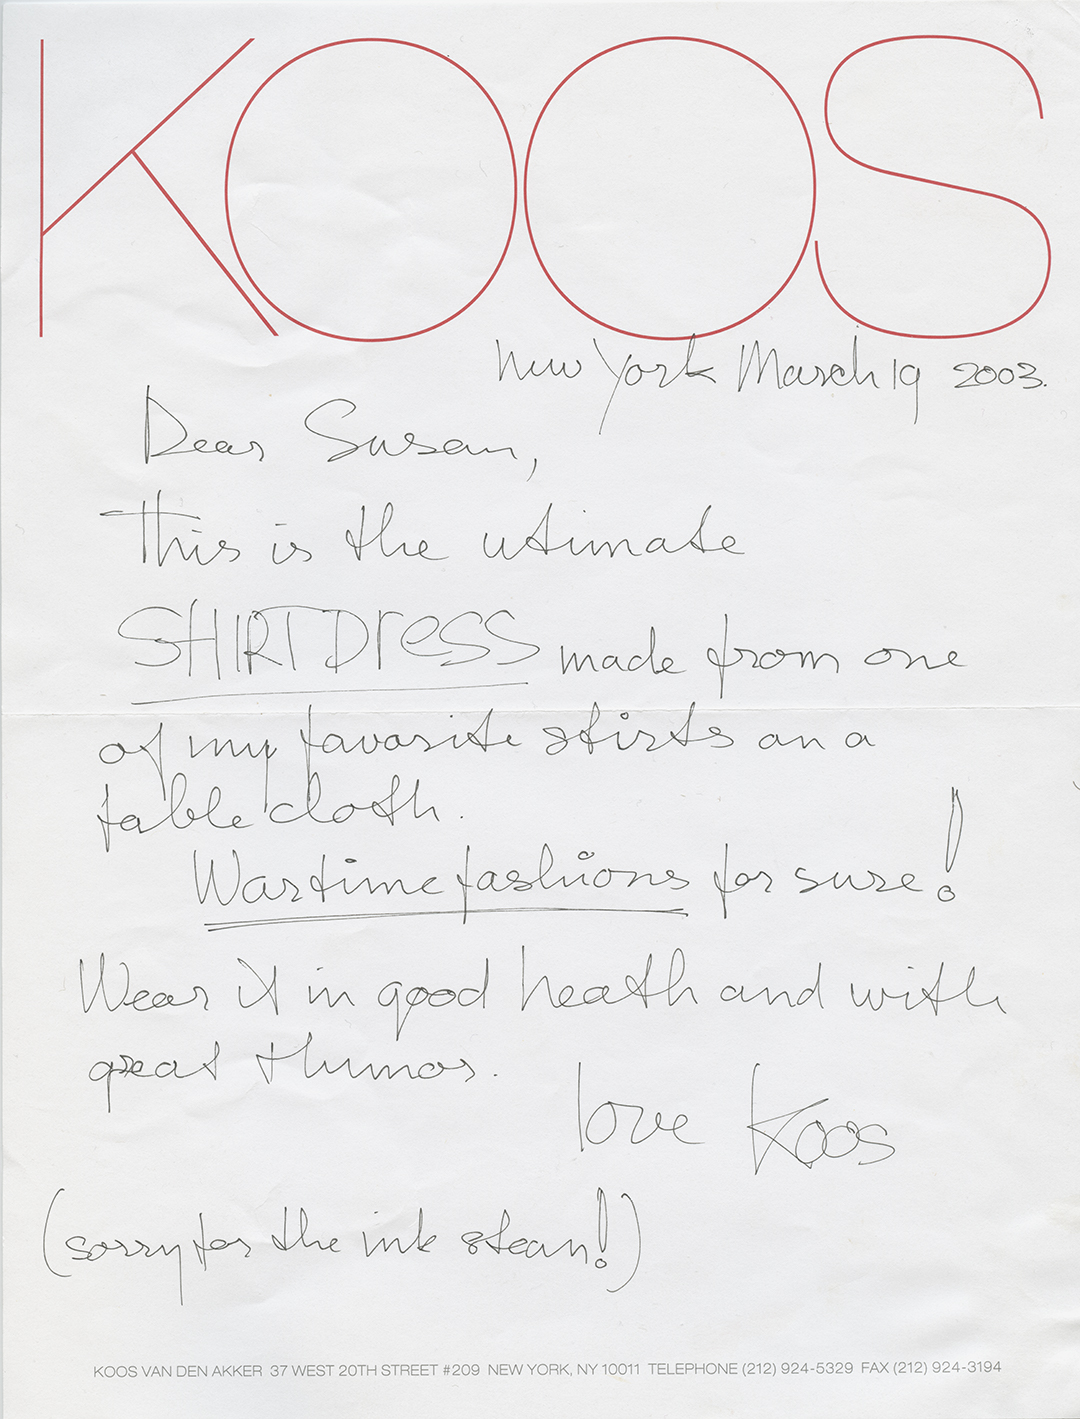 KOOS
New York March 19 2003.
Dear Susan,
This is the utimate
SHIRTDress made from one
of my favorite stirts an a
table cloth.
Wartime fashions for sure!
Wear it in good heath and with
great thumor.
love Koos
(sorry for the ink stean!)
KOOS VAN DEN AKKER 37 WEST 20TH STREET #209 NEW YORK, NY 10011 TELEPHONE (212) 924-5329 FAX (212) 924-3194